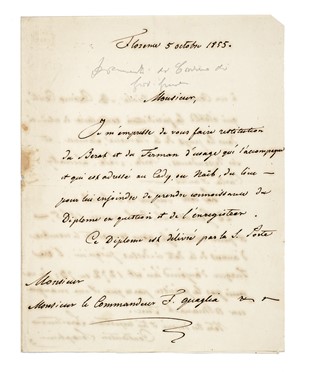 Florence 5 octobre 1855.
Monsieur,
Je m'empresse de vous faire restitution
du Berat et du Ferman d'usage qui l'accompagne
et qui est adressé au Cady ou Naïb, du lieu
pour lui enjoindre de prendre connoissance du
Diplome en question et de l'enregistrer.
Ce Diplome est délivré par la S. Porte
Monsieur
Monsieur le Commandeur F. Quaglia